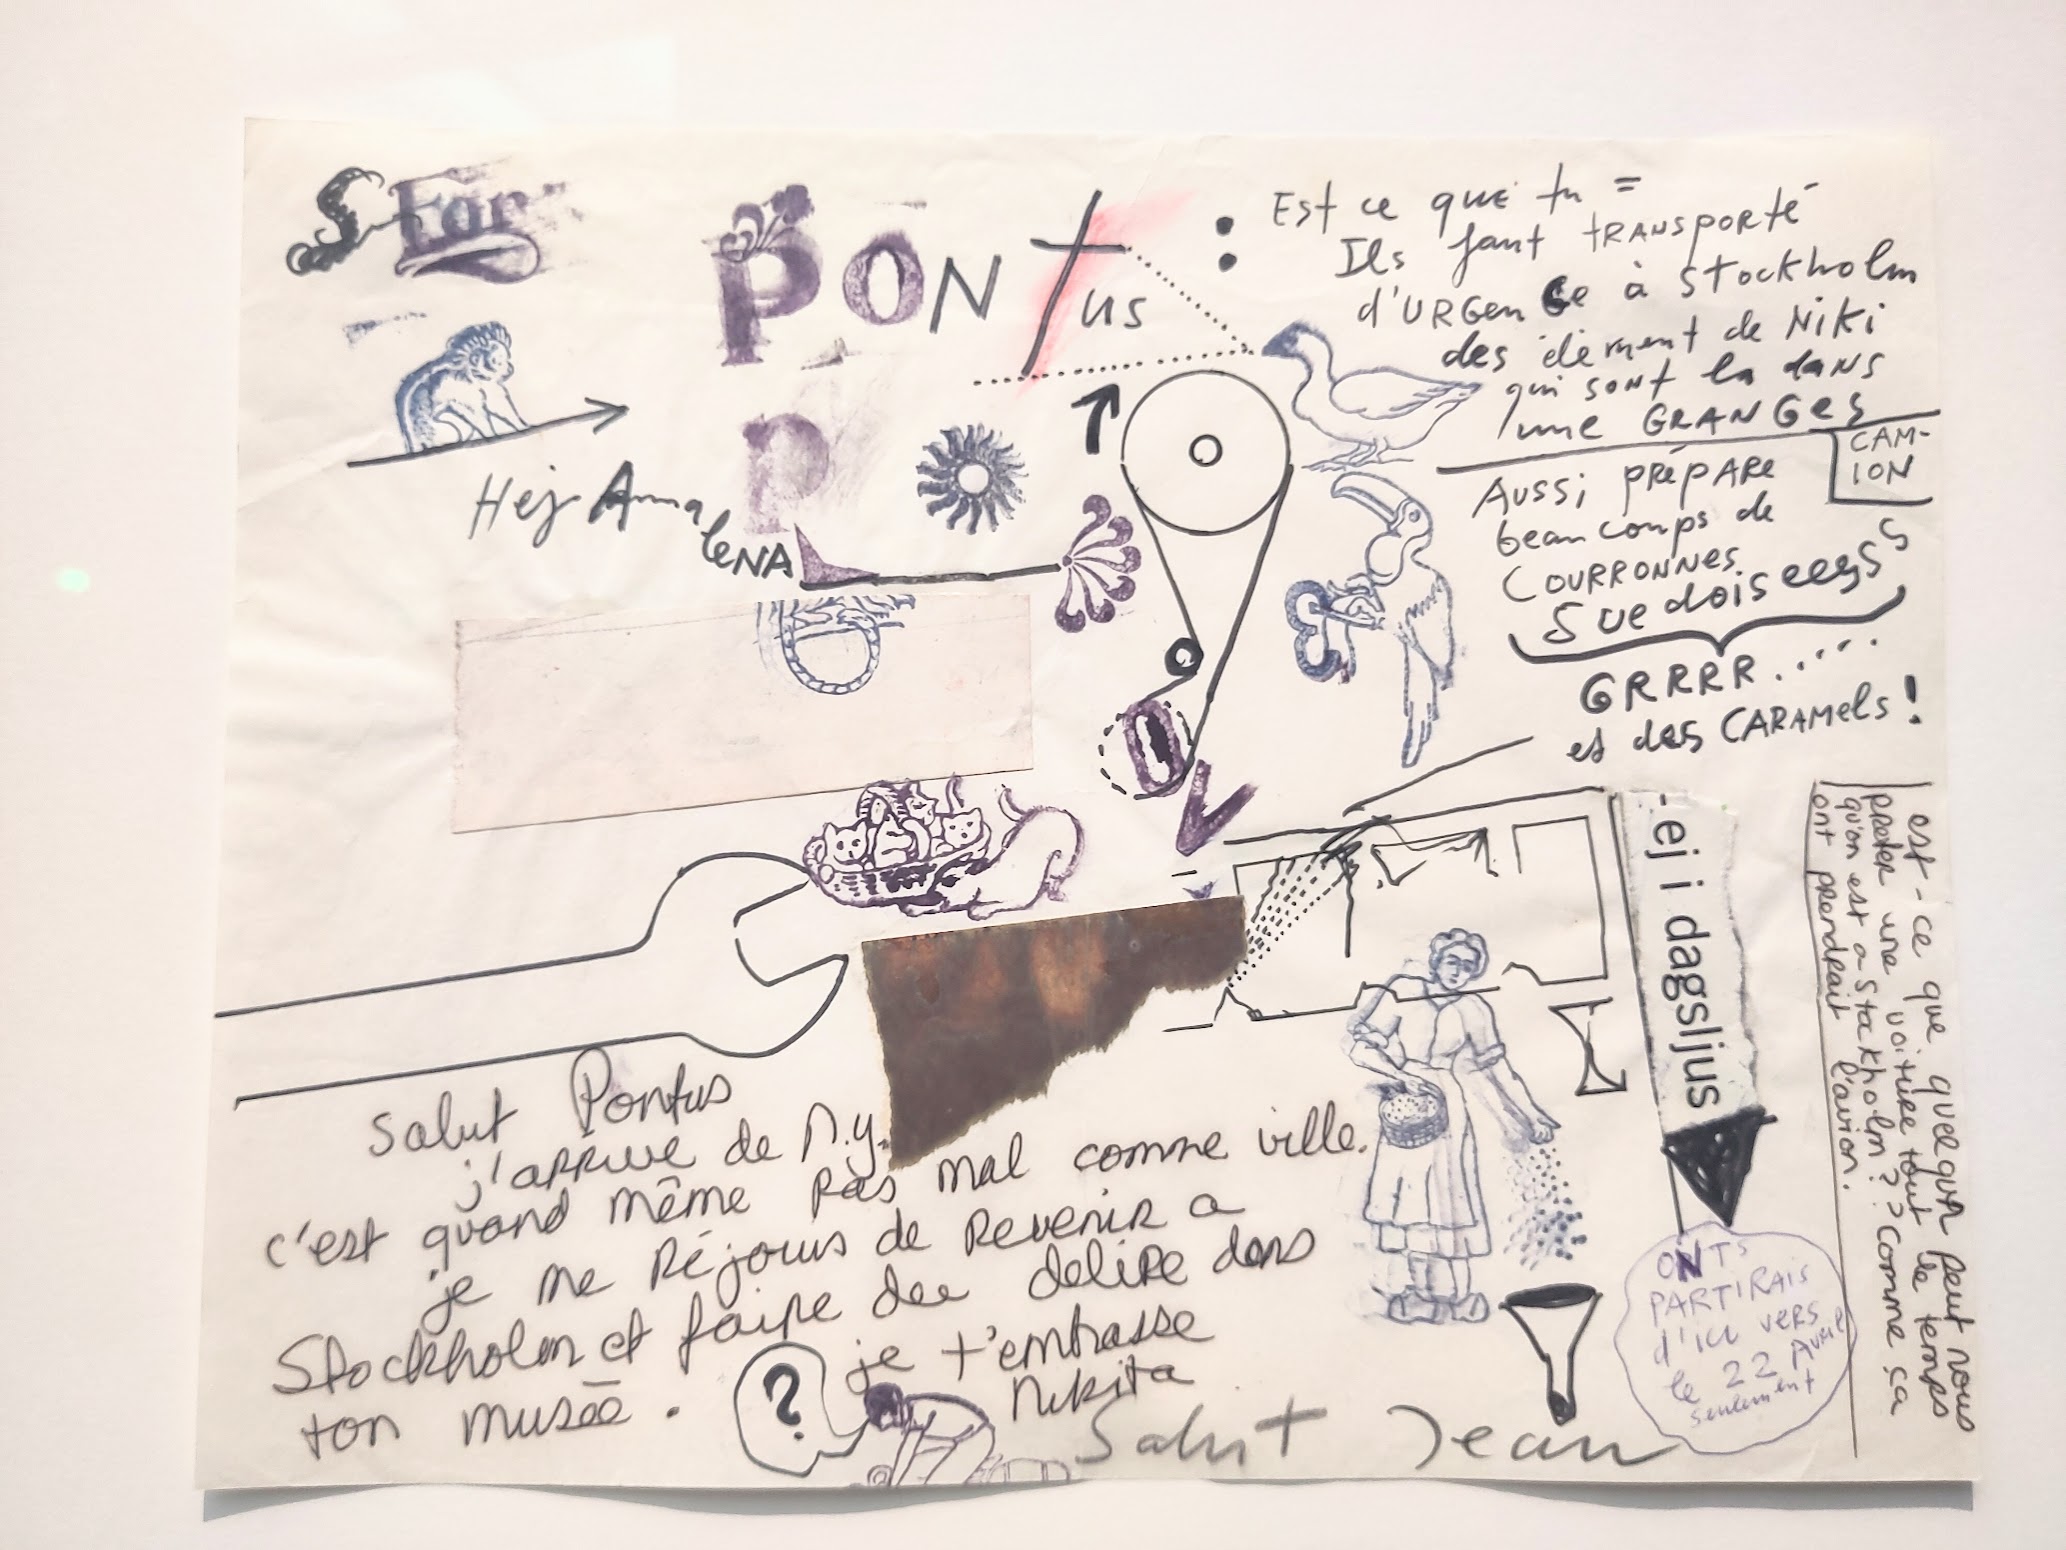 S Far
PONTus :
Est ce que tu =
Ils faut tRANSPORté
d'URGenCe à Stockholm
des élément de NiKi
qui sont la dans
une GRANGes
CAM-
ION
Aussi prépare
beaucoups de
COURRONNES
Suedoiseesss
GRRRR.....
et des CARAMels !
P
Hej AnnaleNA
O
V
-ej i dagsljus
est-ce que quelqun peut nous
preter une voiture tout le temps
qu'on est a Stockholm?? comme ça
ont prendrait l'avion.
Salut Pontus
j'arrive de N.Y.
c'est quand même pas mal comme ville.
je me réjouis de revenir a
Stockholm et faire dee delire dans
ton musée.
je t'embrasse
Nikita
?
Salut Jean
ONTs
PARTIRAis
d'ici vers
le 22 Avril
seulement